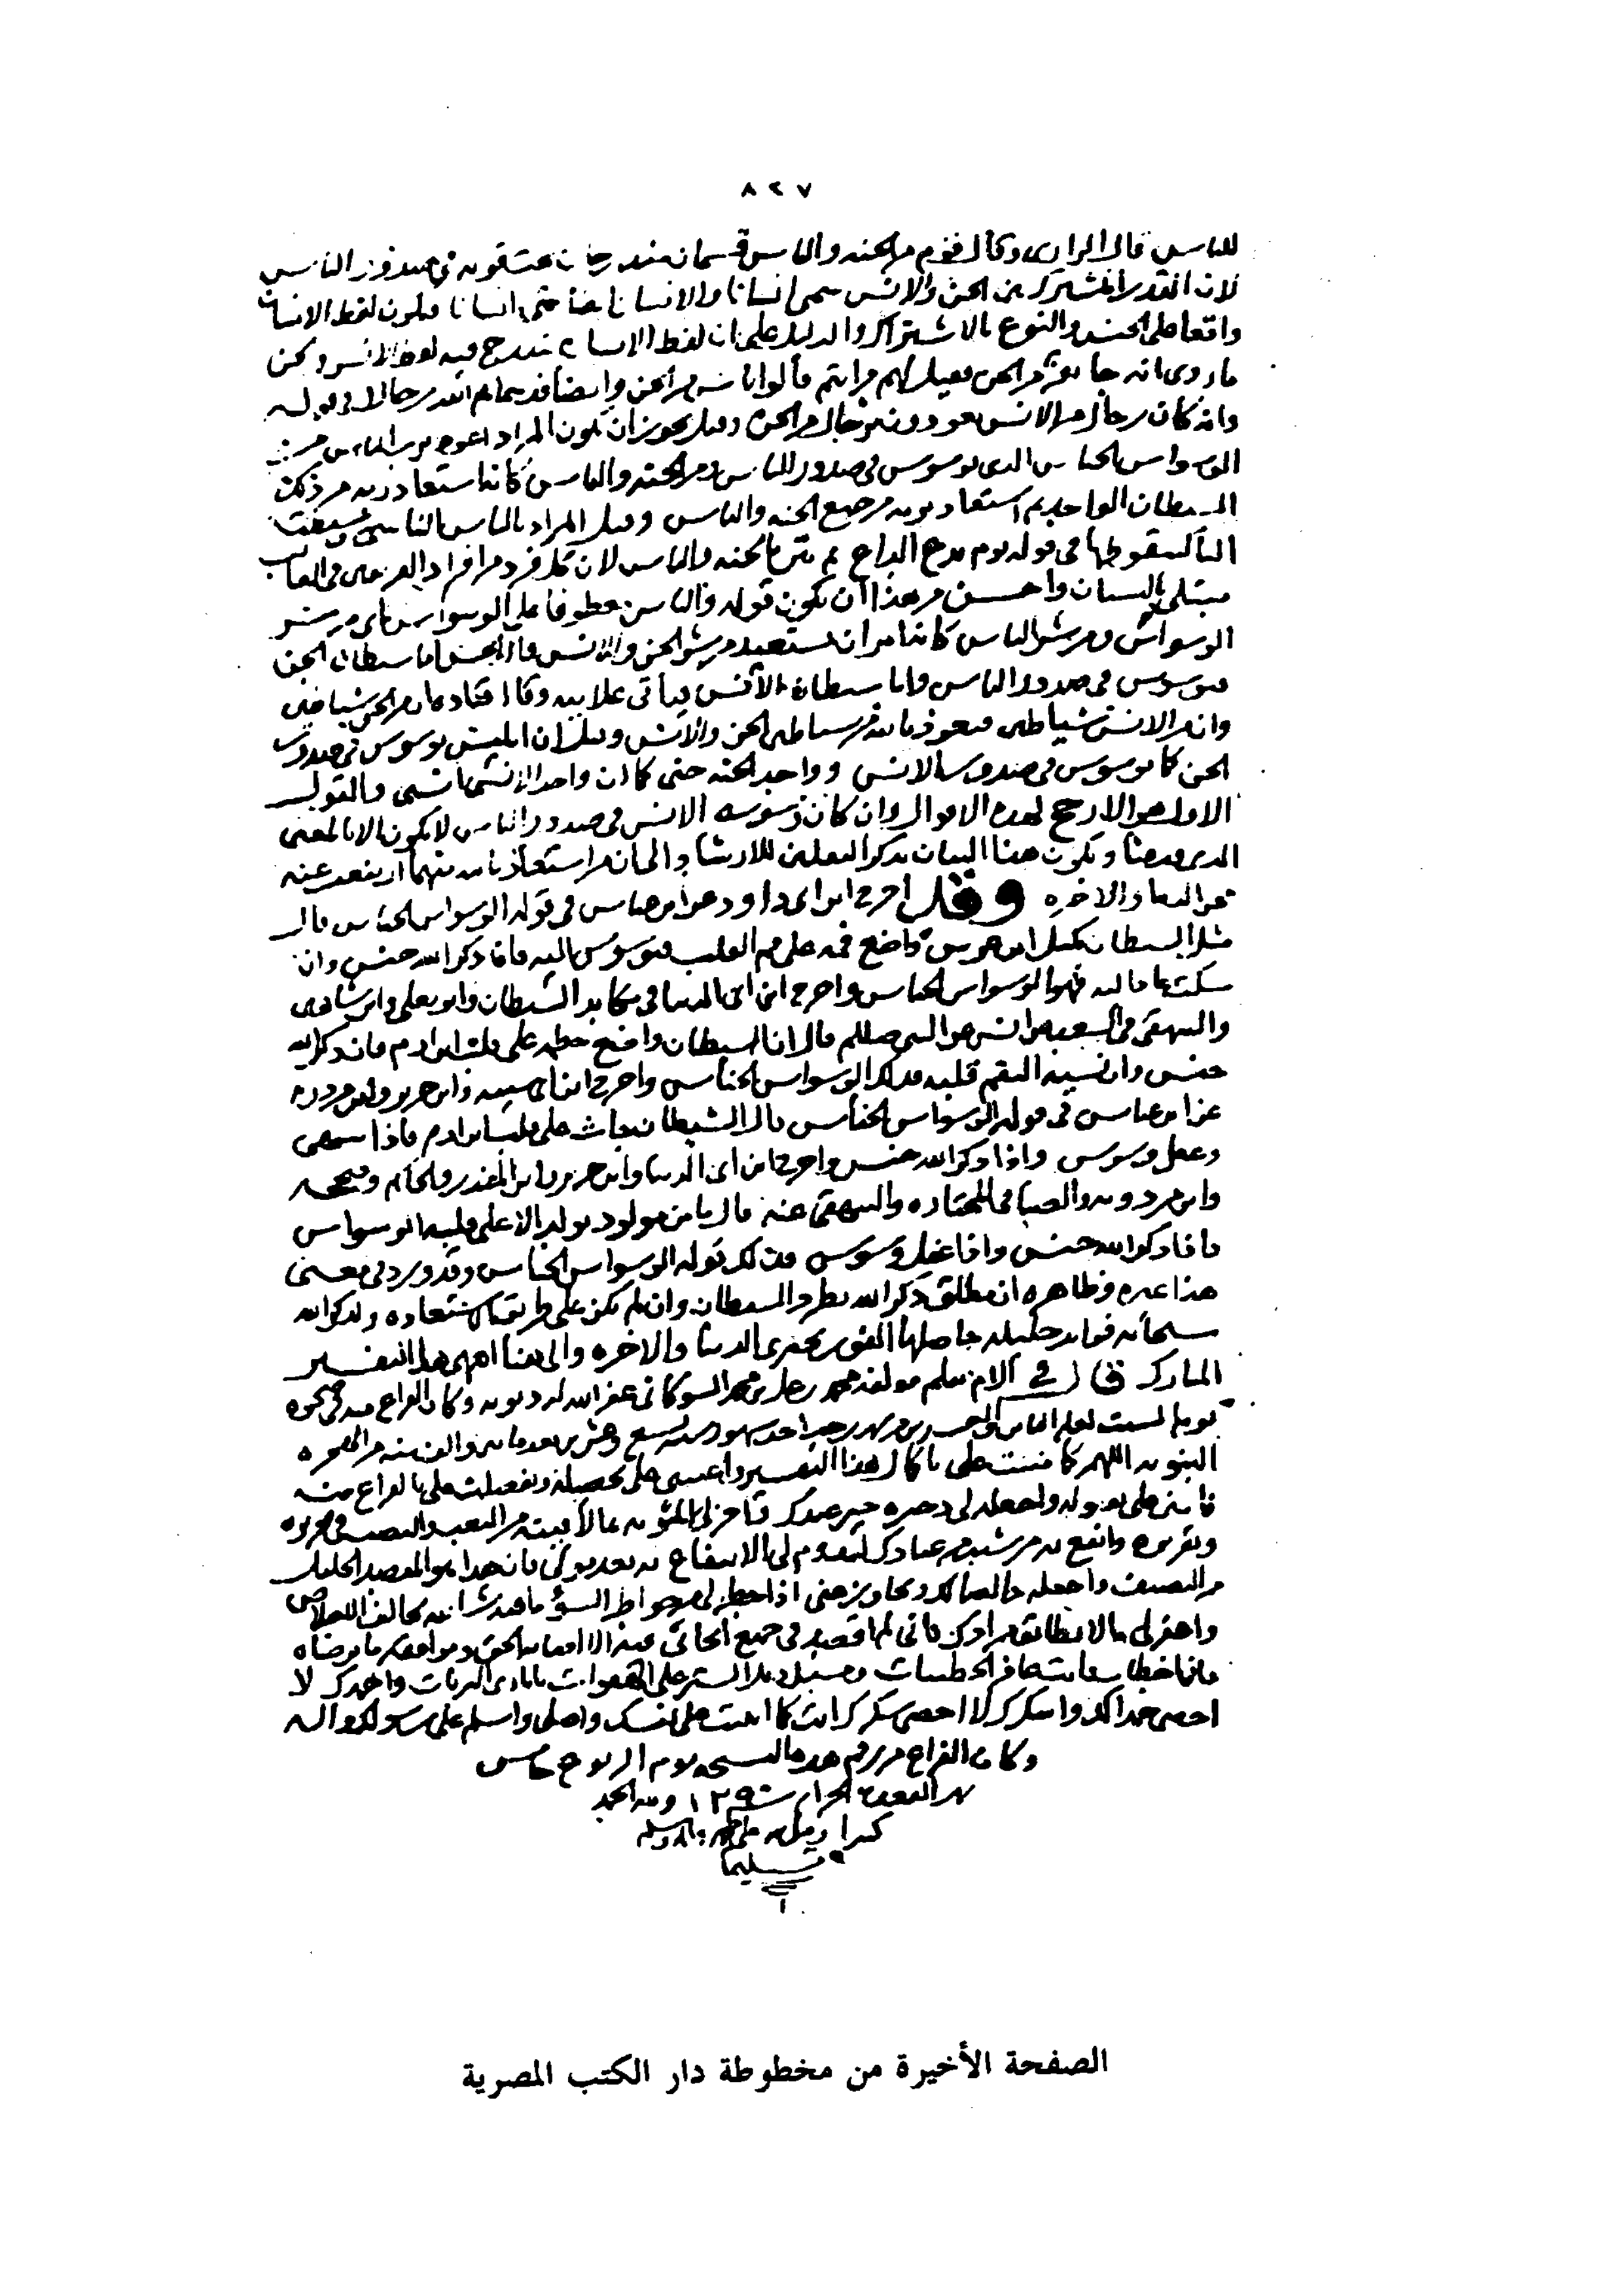 ٨٢٧
للناس قال الرازي وقال قوم من الجنه والناس قسمان مندرجان تحت قوله في صدور الناس
لان القدر المشترك بين الجن والانس يسمى انسانا والانسان ايضا يسمى انسانا فيكون لفظ الانسان
واقعا على الجنس والنوع بالاشتراك والدليل على ان لفظ الانسان يندرج فيه لفظ الانس والجن
ما روى انه جا نفر من الجن فقيل لهم من انتم قالوا اناس من الجن وايضا قد سماهم الله رجالا في قوله
وانه كان رجال من الانس يعوذون برجال من الجن وقيل يجوز ان يكون المراد اعوذ برب الناس من
الوسواس الخناس الذي يوسوس في صدور الناس ومن الجنه والناس كانه استعاذ ربه من ذلك
الشيطان الواحد ثم استعاذ بربه من جميع الجنه والناس وقيل المراد بالناس الناسي وسقطت
اليا كسقوطها في قوله يوم يدع الداع ثم بين بالجنه والناس لان كل فرد من افراد الفريقين في الغالب
مبتلى بالنسيان واحسن من هذا ان يكون قوله والناس معطوفا على الوسواس اي من شر
الوسواس ومن شر الناس كانه امر ان يستعيذ من شر الجن والانس قال الحسن اما شيطان الجن
فيوسوس في صدور الناس واما شيطان الانس فياتي علانيه وقال قتاده ان من الجن شياطين
وان من الانس شياطين فنعوذ بالله من شياطين الجن والانس وقيل ان ابليس يوسوس في صدور
الجن كما يوسوس في صدور الانس وواحد الجنه جني كما ان واحد الانس انسي والقول
الاول هو الارجح لهذه الاقوال وان كان وسوسه الانس في صدور الناس لا يكون الا بالمعنى
الذي قدمنا ويكون هذا البيان بذكر الثقلين للارشاد الى ان من استعاذ بالله منهما ارتفعت عنه
محن الدنيا والاخره وقد اخرج ابن ابي داود عن ابن عباس في قوله الوسواس الخناس قال
مثل الشيطان كمثل ابن عرس واضع فمه على فم القلب فيوسوس اليه فاذا ذكر الله خنس وان
سكت عاد اليه فهو الوسواس الخناس واخرج ابن ابي الدنيا في مكايد الشيطان وابو يعلى وابن شاهين
والبيهقي في الشعب عن انس عن النبي صللم قال ان الشيطان واضع خطمه على قلب ابن ادم فان ذكر الله
خنس وان نسيه التقم قلبه فذلك الوسواس الخناس واخرج ابن ابي شيبه وابن جرير وابن مردويه
عن ابن عباس في قوله الوسواس الخناس قال الشيطان جاث على قلب ابن ادم فاذا سهى
وغفل وسوس واذا ذكر الله خنس واخرج ابن ابي الدنيا وابن جرير وابن المنذر والحاكم وصححه
وابن مردويه والضيا في المختاره والبيهقي عنه قال ما من مولود يولد الا على قلبه الوسواس
فاذا ذكر الله خنس واذا غفل وسوس فذلك قوله الوسواس الخناس وقد ورد في معنى
هذا غيره وظاهره ان مطلق ذكر الله يطرد الشيطان وان لم يكن على طريق الاستعاذه ولذكر الله
سبحانه فوايد جليله حاصلها الفوز بخيري الدنيا والاخره والى هنا انتهى هذا التفسير
المبارك قال في الام بقلم مولفه محمد بن علي بن محمد الشوكاني غفر الله له ذنوبه وكان الفراغ منه في ضحوه
يوم السبت لعله الثامن والعشرين من شهر رجب احد شهور سنه تسع وعشرين بعد مايتين والف سنه من الهجره
النبويه اللهم كما مننت علي باكمال هذا التفسير واعنتني على تحصيله وتفضلت علي بالفراغ منه
فامنن علي بقبوله واجعله لي ذخيره خير عندك واجزل لي المثوبه بما لاقيته من التعب والنصب في تحريره
وتقريره وانفع به من شيت من عبادك ليدوم لي الانتفاع به بعد موتي فان هذا هو المقصد الجليل
من التصنيف واجعله خالصا لك وتجاوز عني اذا خطر لي من خواطر السوء ما فيه شايبه تخالف الاخلاص
واغفر لي ما لا يطابق مرادك فاني لم اقصد في جميع ابحاثي فيه الا اصابه الحق وموافقه ما ترضاه
فان اخطات فانت غافر الخطيات ومسبل ذيل الستر على الهفوات يا بارى البريات واحمدك لا
احصي حمدا لك واشكرك لا احصي شكرك انت كما اثنيت على نفسك واصلي واسلم على رسولك واله
وكان الفراغ من رقم هذه النسخه يوم الربوع خامس
شهر القعده الحرام سنة ١٢٩٠ ولله الحمد
كثيرا وصلى الله على محمد واله وسلم
تسليما
الصفحة الأخيرة من مخطوطة دار الكتب المصرية